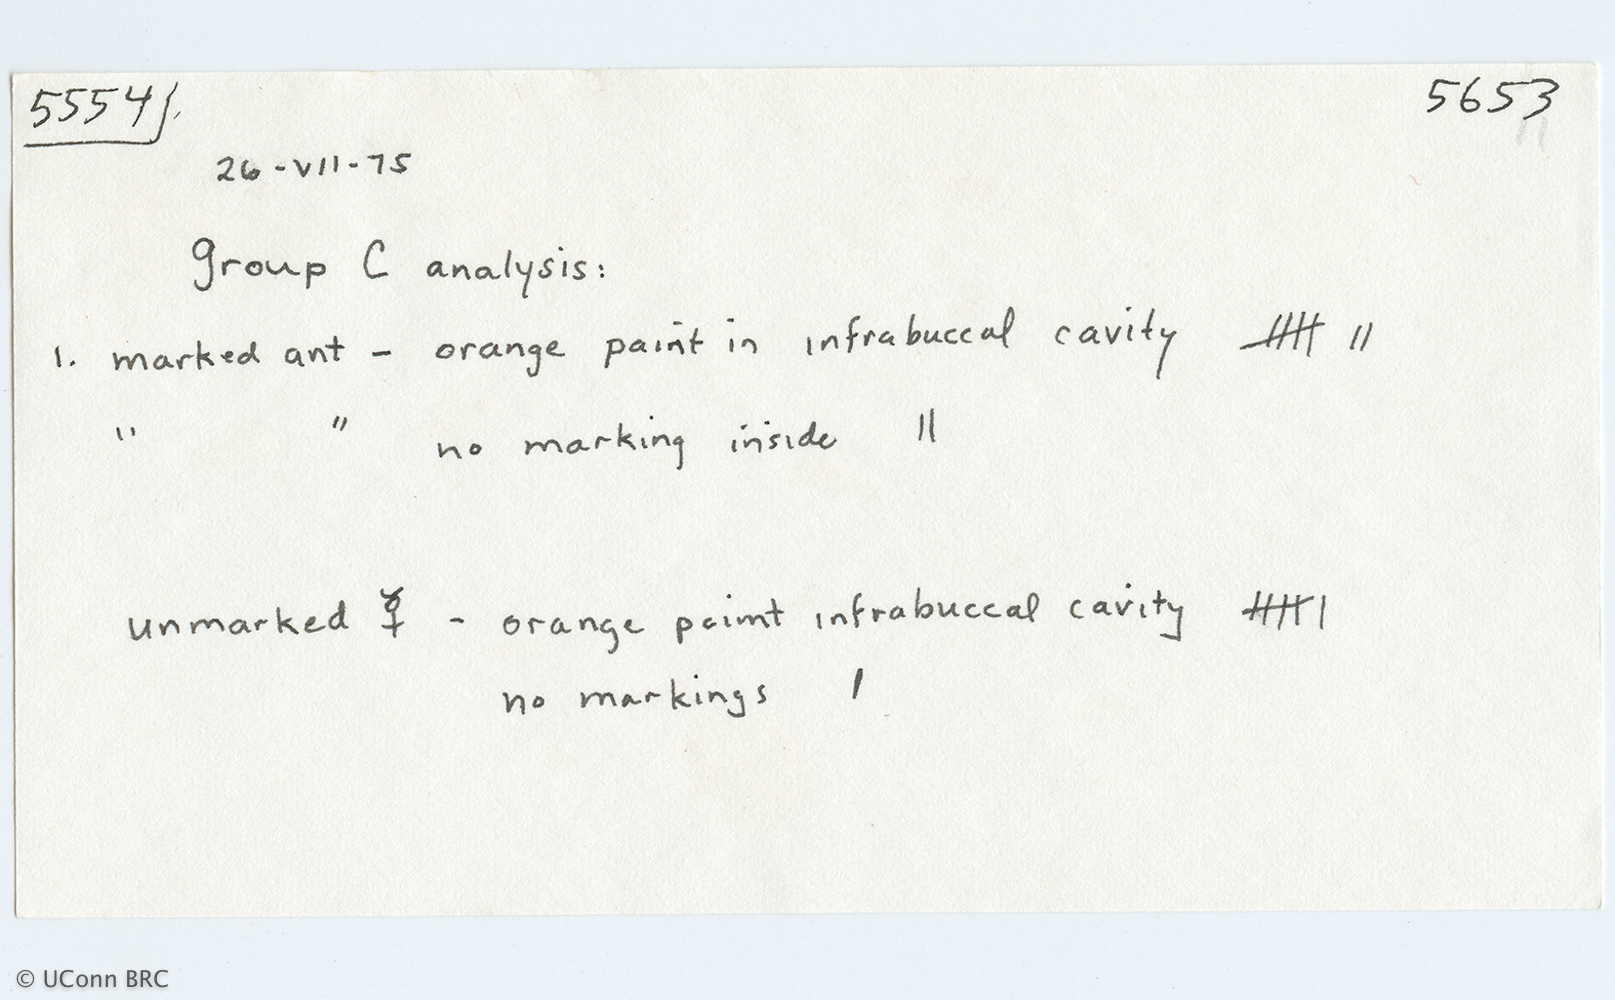 5554 5653
26-VII-75
Group C analysis:
1. marked ant - orange paint in infrabuccal cavity 卌 ||
" " no marking inside ||
unmarked ☿ - orange paint infrabuccal cavity 卌 |
no markings |
© UConn BRC